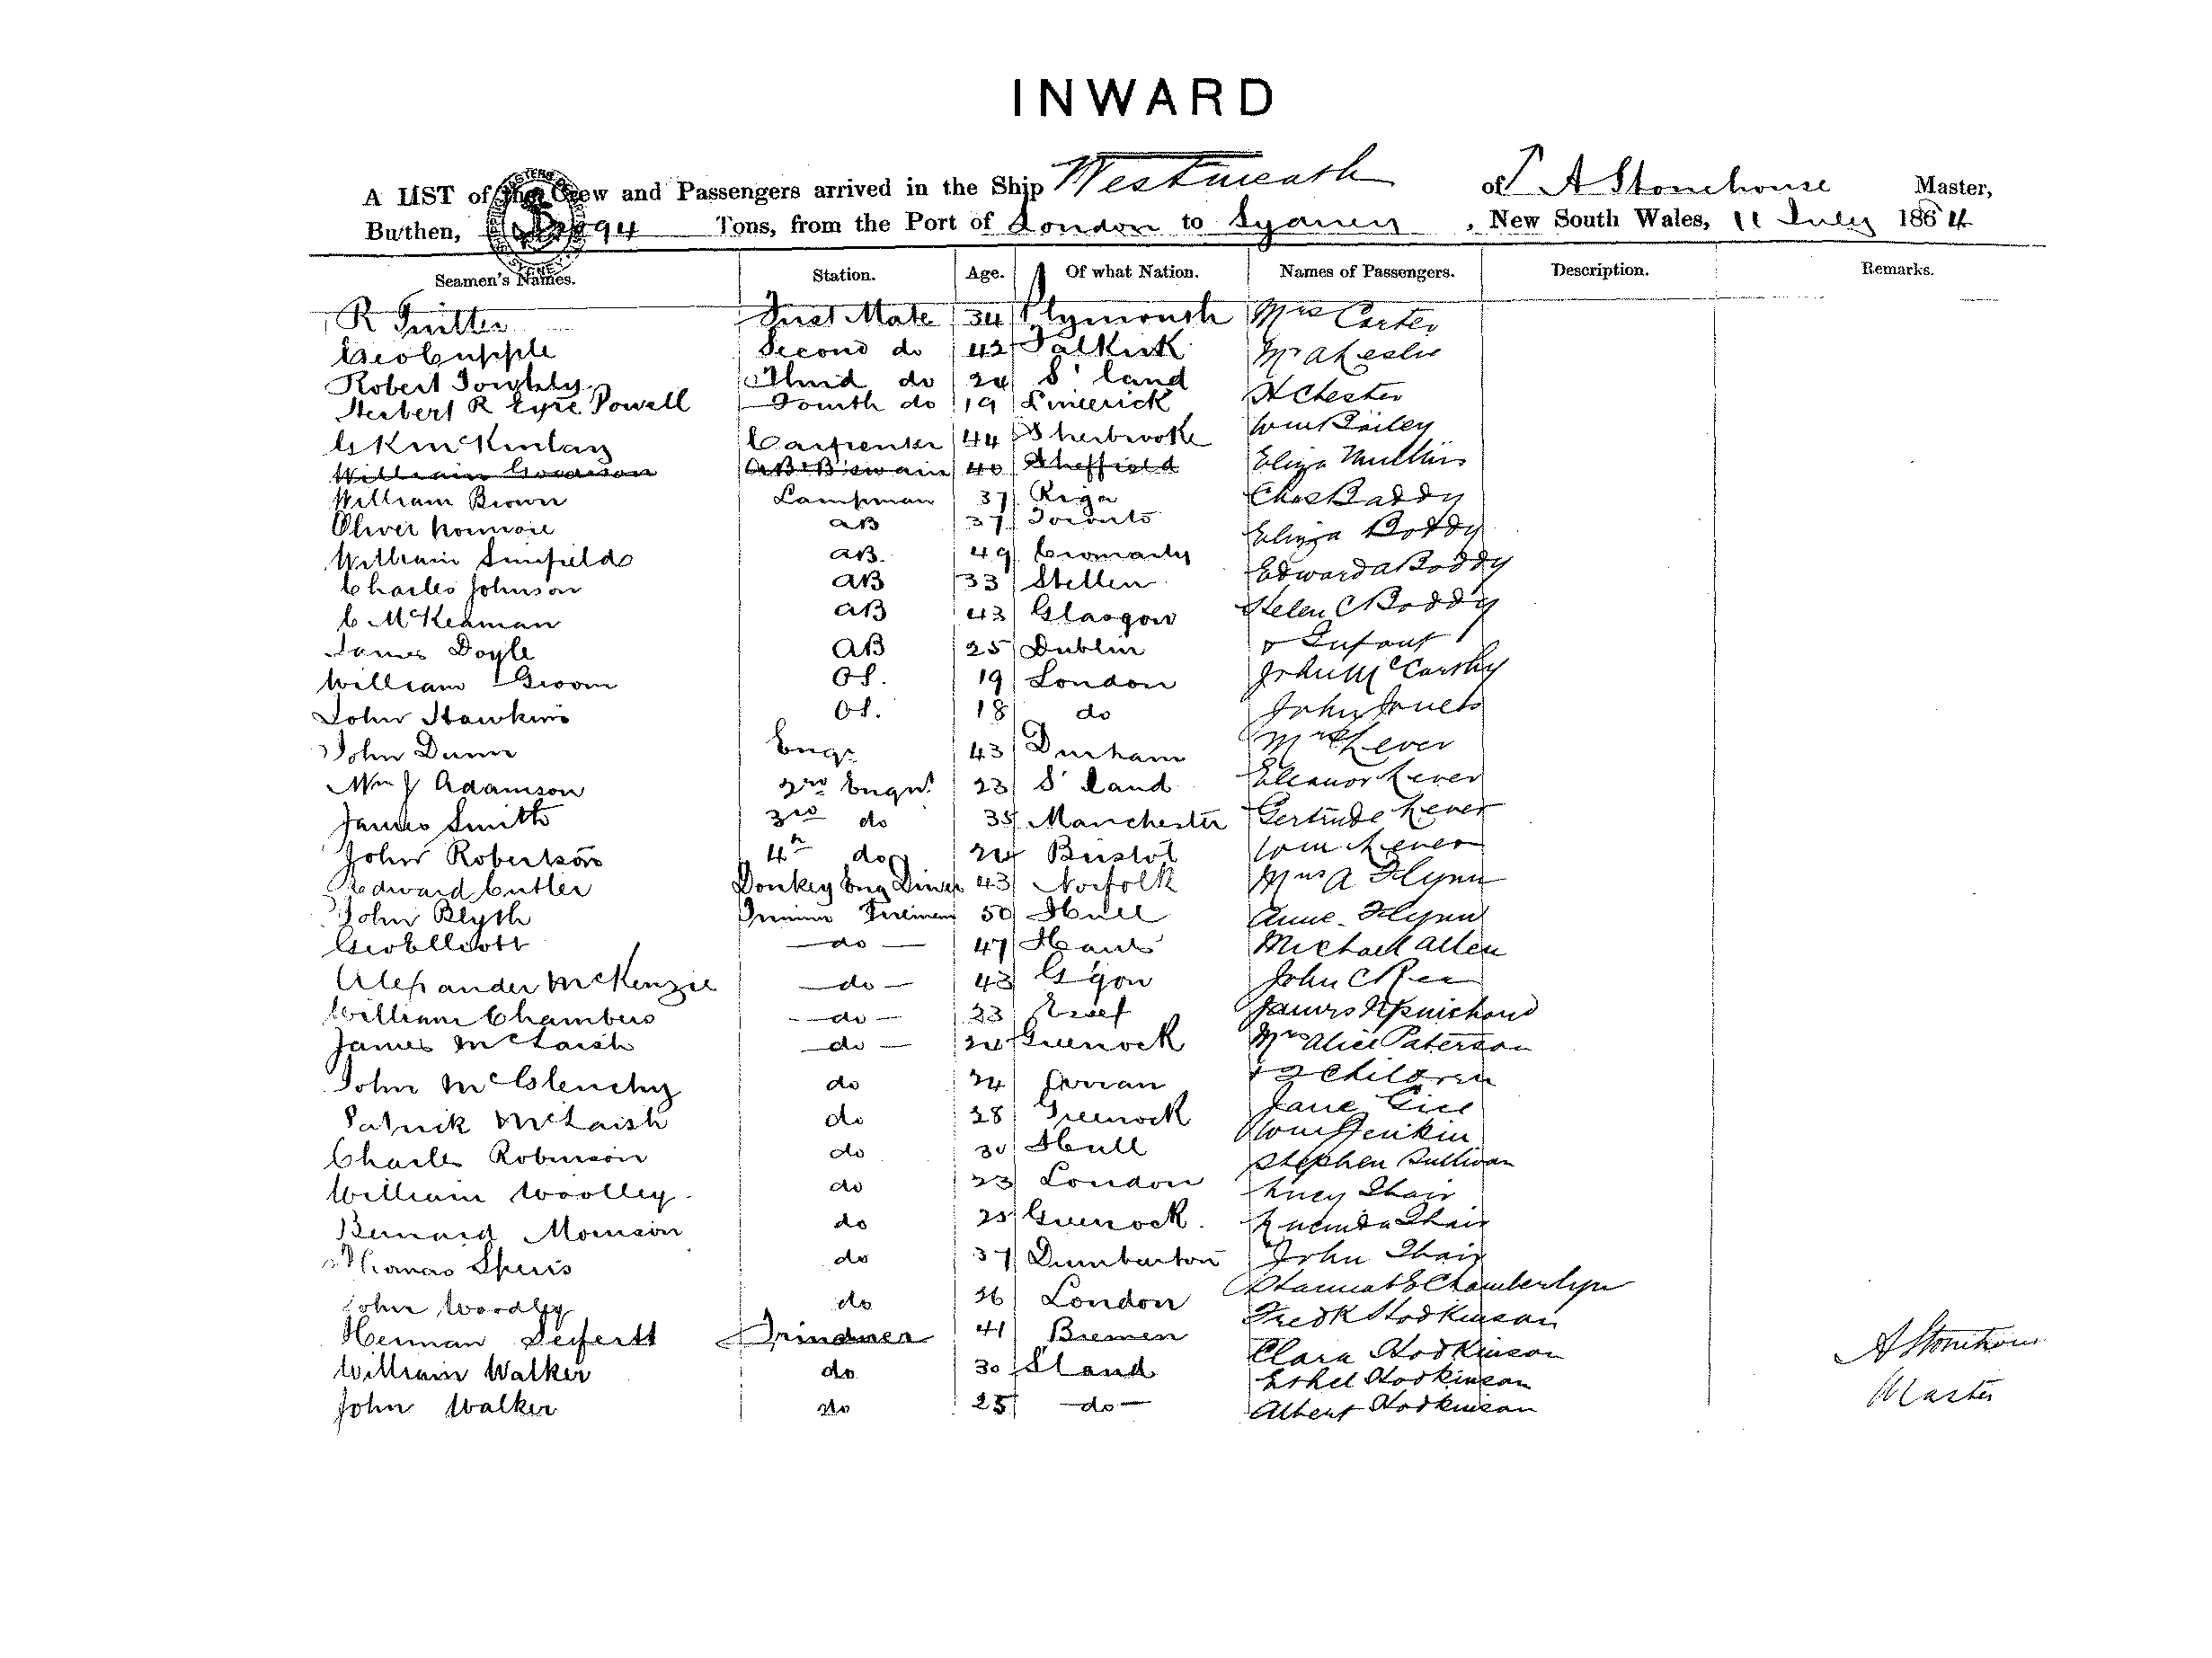 INWARD
A LIST of the Crew and Passengers arrived in the Ship Westmeath of A Stonehouse Master,
Burthen, 94 Tons, from the Port of London to Sydney, New South Wales, 11 July 1864
Seamen's Names. Station. Age. Of what Nation. Names of Passengers. Description. Remarks.
R First Mate 34 Plymouth Mrs Carter
Geo Cupple Second do 42 Falkirk Mr A Leslie
Robert Third do 24 S'land H Chester
Herbert R Eyre Powell Fourth do 19 Limerick Wm Bailey
G K McKinlay Carpenter 44 Sherbrooke Eliza Mullins
William Goodison AB B'swain 40 Sheffield
William Brown Lampman 37 Riga Chas Baddy
Oliver AB 37 Toronto Eliza Boddy
William Sinfield AB. 49 Cromarty Edward A Boddy
Charles Johnson AB 33 Stetten Helen C Boddy
C McKeaman AB 43 Glasgow
James Doyle AB 25 Dublin Infant
William Groom OS. 19 London John McCarthy
John Hawkins OS. 18 do John
John Dunn Engr 43 Durham Mrs Lever
Wm J Adamson 2nd Engnr 23 S'land Eleanor Lever
James Smith 3rd do 35 Manchester Gertrude Lever
John Robertson 4th do 24 Bristol Wm Lever
Edward Cutler Donkey Eng Driver 43 Norfolk Mrs A Flynn
John Blyth Firemen 50 Hull Anne Flynn
Geo Elliott do 47 Hants Michael Allen
Alexander McKenzie do 43 G'gow John C Rea
William Chambers do 23 James
James McLaish do 24 Greenock Mrs Alice Paterson
John McGlenchy do 24 Arran & 2 Children
Patrick McLaish do 28 Greenock Jane
Charles Robinson do 30 Hull Wm Jenkin
William Woolley do 23 London Stephen Sullivan
Bernard Morrison do 25 Greenock Lucy Thair
Thomas Speirs do 37 Dumbarton Lucinda Thair
John Woodley do 26 London John Thair
Herman Seifertt Trimmer 41 Bremen Chamberlyn
William Walker do 30 S'land Fredk Hodkinson
John Walker do 25 do Clara Hodkinson
Ethel Hodkinson
Albert Hodkinson
A Stonehouse
Master